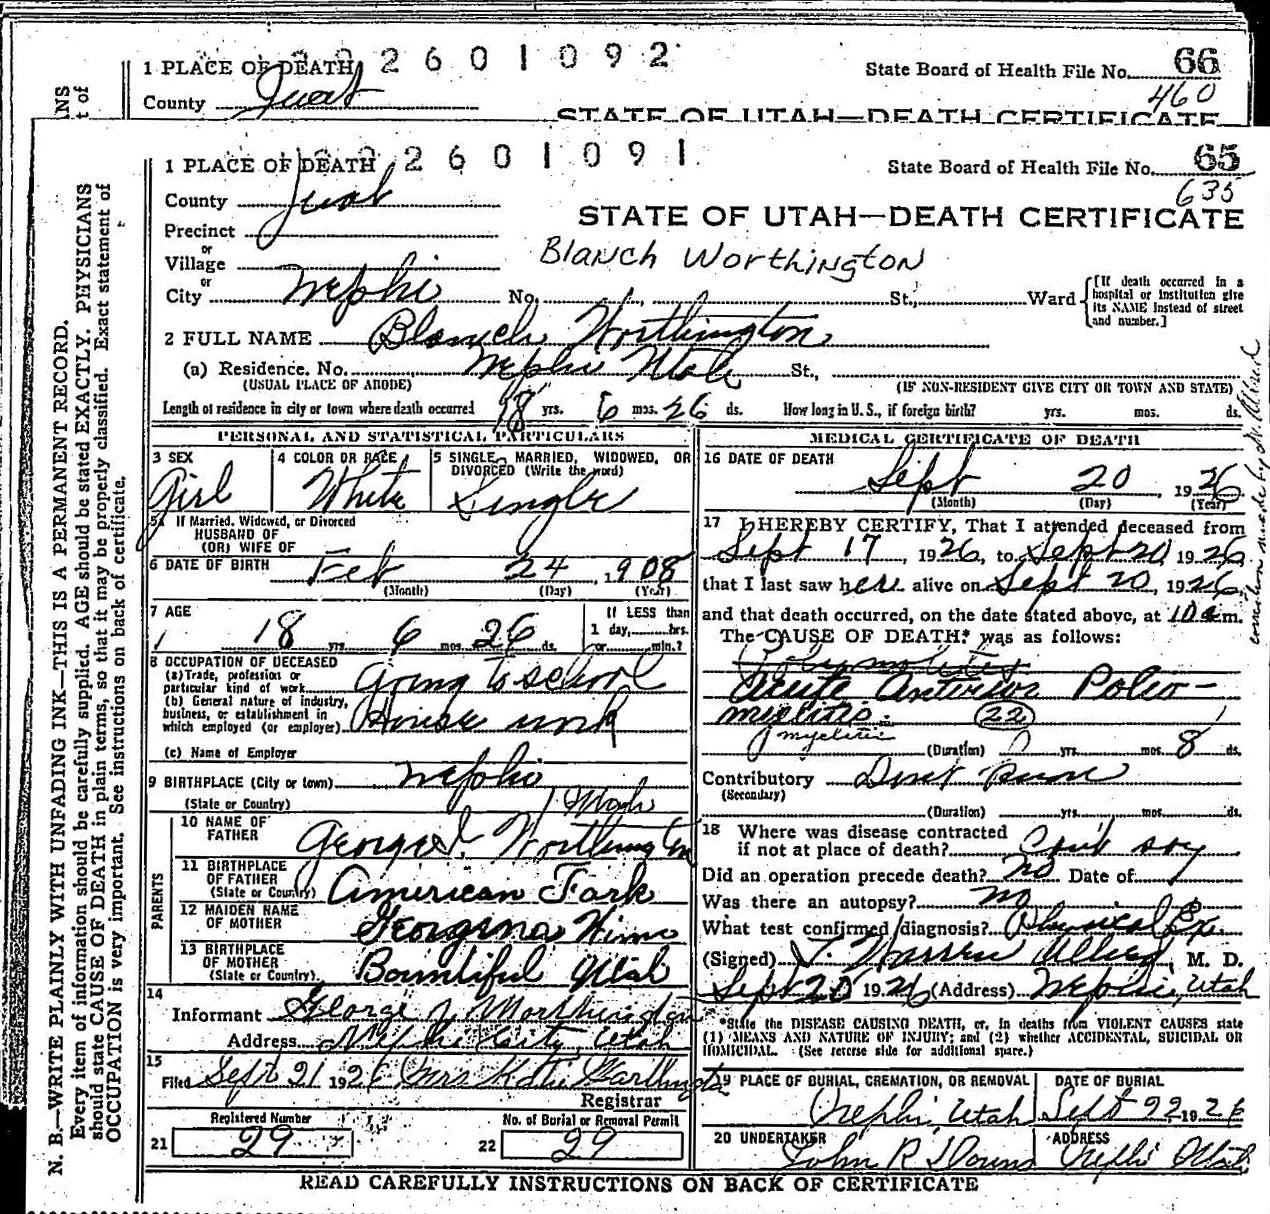 1 PLACE OF DEATH 2 6 0 1 0 9 2
State Board of Health File No. 66
460
County Juab
STATE OF UTAH—DEATH CERTIFICATE
1 PLACE OF DEATH 2 6 0 1 0 9 1
State Board of Health File No. 65
635
County Juab
STATE OF UTAH—DEATH CERTIFICATE
Precinct
or
Village
Blanch Worthington
or
City Nephi No. St., Ward
[If death occurred in a hospital or institution give its NAME instead of street and number.]
2 FULL NAME Blanch Worthington
(a) Residence. No. Nephi Utah St.,
(USUAL PLACE OF ABODE) (IF NON-RESIDENT GIVE CITY OR TOWN AND STATE)
Length of residence in city or town where death occurred 18 yrs. 6 mos. 26 ds. How long in U. S., if foreign birth? yrs. mos. ds.
PERSONAL AND STATISTICAL PARTICULARS
3 SEX
Girl
4 COLOR OR RACE
White
5 SINGLE, MARRIED, WIDOWED, OR DIVORCED (Write the word)
Single
5a If Married, Widowed, or Divorced
HUSBAND OF
(OR) WIFE OF
6 DATE OF BIRTH Feb 24, 1908
(Month) (Day) (Year)
7 AGE
18 yrs. 6 mos. 26 ds.
If LESS than
1 day, hrs.
or min.?
8 OCCUPATION OF DECEASED
(a) Trade, profession or
particular kind of work Going to school
(b) General nature of industry,
business, or establishment in
which employed (or employer) House work
(c) Name of Employer
9 BIRTHPLACE (City or town) Nephi
(State or Country) Utah
PARENTS
10 NAME OF
FATHER George J. Worthington
11 BIRTHPLACE
OF FATHER
(State or Country) American Fork
12 MAIDEN NAME
OF MOTHER Georgena Winn
13 BIRTHPLACE
OF MOTHER
(State or Country) Bountiful Utah
14
Informant George J Worthington
Address Nephi City Utah
15
Filed Sept 21 1926 Mrs Katie Worthington
Registrar
Registered Number
21 29
No. of Burial or Removal Permit
22 29
MEDICAL CERTIFICATE OF DEATH
16 DATE OF DEATH
Sept 20, 1926
(Month) (Day) (Year)
17 I HEREBY CERTIFY, That I attended deceased from
Sept 17, 1926, to Sept 20, 1926
that I last saw her alive on Sept 20, 1926
and that death occurred, on the date stated above, at 10 a m.
The CAUSE OF DEATH* was as follows:
Acute Anterior Polio-
myelitis. 22
myelitis
(Duration) yrs. mos. 8 ds.
Contributory
(Secondary)
(Duration) yrs. mos. ds.
18 Where was disease contracted
if not at place of death? Can't say
Did an operation precede death? No Date of
Was there an autopsy? No
What test confirmed diagnosis? Physical Ex.
(Signed) Warren Allred, M. D.
Sept 20 1926 (Address) Nephi, Utah
*State the DISEASE CAUSING DEATH, or, in deaths from VIOLENT CAUSES state
(1) MEANS AND NATURE OF INJURY; and (2) whether ACCIDENTAL, SUICIDAL OR
HOMICIDAL. (See reverse side for additional space.)
19 PLACE OF BURIAL, CREMATION, OR REMOVAL
Nephi, Utah
DATE OF BURIAL
Sept 22 1926
20 UNDERTAKER
John R
ADDRESS
Nephi Utah
READ CAREFULLY INSTRUCTIONS ON BACK OF CERTIFICATE
N. B.—WRITE PLAINLY WITH UNFADING INK—THIS IS A PERMANENT RECORD.
Every item of information should be carefully supplied. AGE should be stated EXACTLY. PHYSICIANS
should state CAUSE OF DEATH in plain terms, so that it may be properly classified. Exact statement of
OCCUPATION is very important. See instructions on back of certificate.